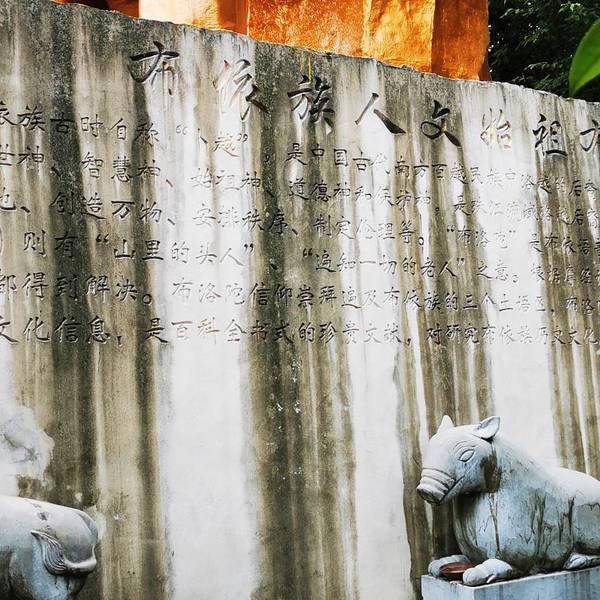 布依族人文始祖
依族古时自称“卜越”，是中国古代南方百越民族中洛越的后裔
世神、智慧神、始祖神、道德神和保护神，是
也、创造万物、安排秩序、制定伦理等。“布洛陀”是布依语
）则有“山里的头人”、“遍知一切的老人”之意。根据
都得到解决。布洛陀信仰崇拜遍及布依族的三个土语区，布洛
文化信息，是百科全书式的珍贵文献，对研究布依族历史文化